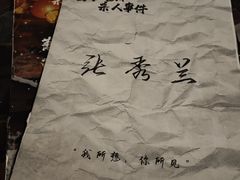 杀人事件
张秀兰
“我所想，你所见”